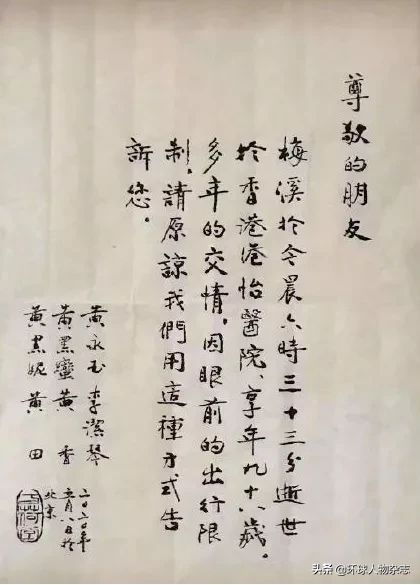 尊敬的朋友
梅溪於今晨六時三十三分逝世
於香港港怡醫院、享年九十八歲。
多年的交情，因眼前的出行限
制，請原諒我們用這種方式告
訴您。
黄永玉 李潔琴
黄黑蠻 黄香
黄黑妮 黄田
二〇二〇年
五月八日於
北京
头条 @环球人物杂志